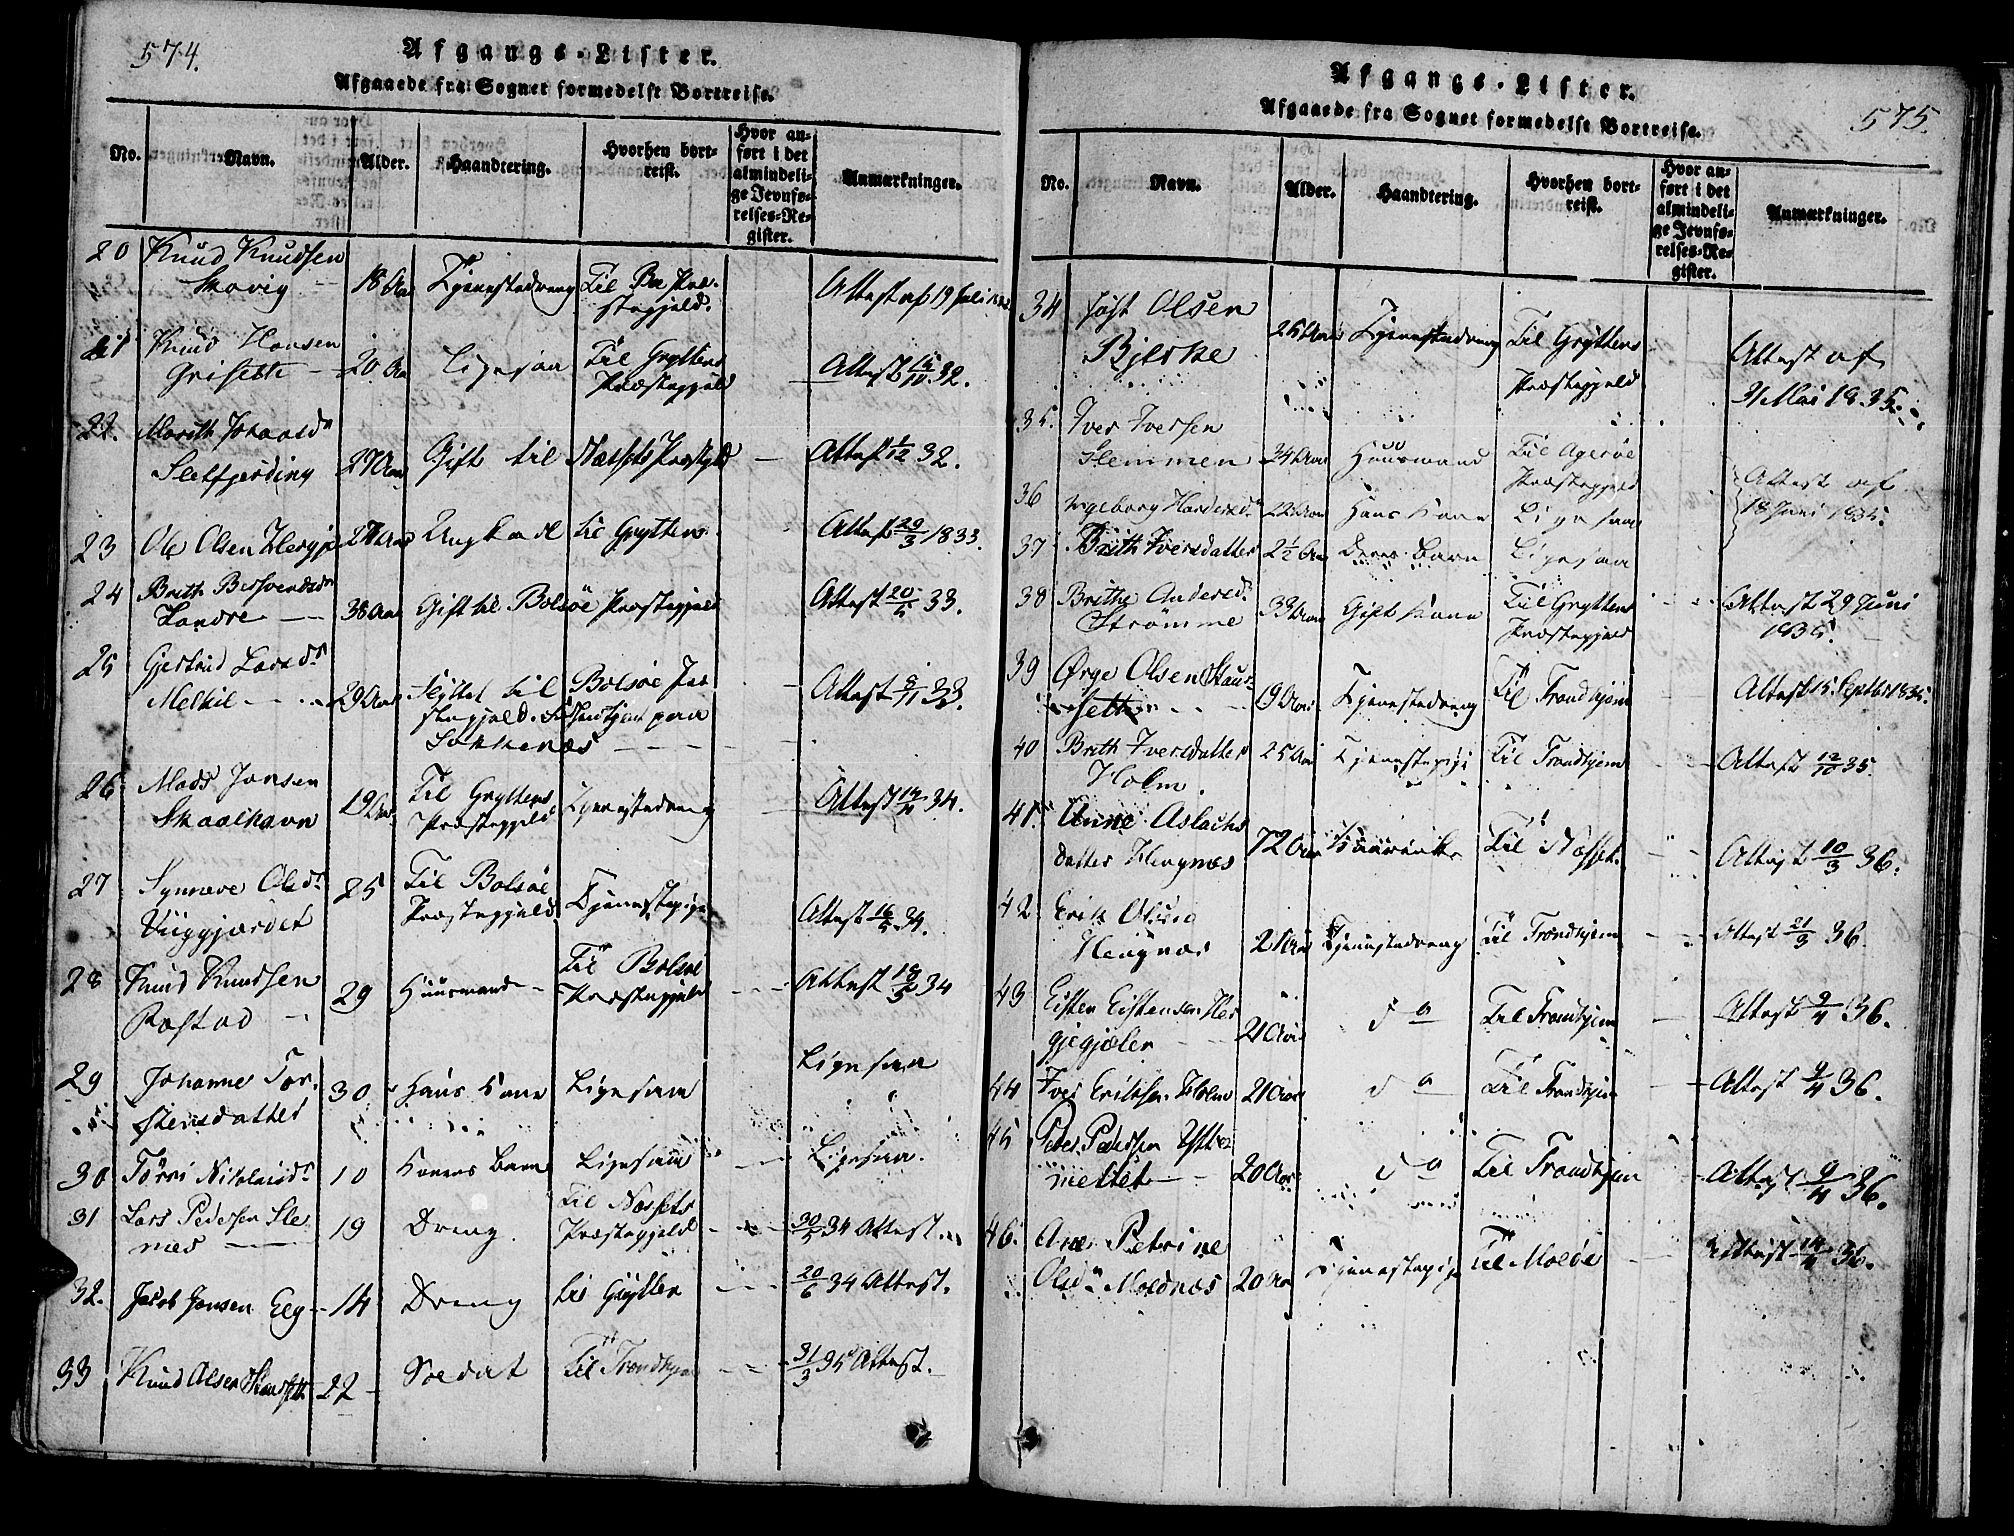 574.
Afgangs-Lister.
Afgaaede fra Sognet formedelst Bortreise.
No. Navn. Alder. Haandtering. Hvorhen bortreist. Hvor anført i det almindelige Jevnførelses-Register. Anmærkninger.
20 Knud Knudsen
Skovig 18 Aar Tjenestedreng Til Boe Præ-
stegjeld. Attest af 19 Juli
21 Knud Hansen
Grisette 20 Aar Ligesaa Til Gryttens
Præstegjeld Attest 32.
22. Marith
Sletfjerding 27 Aar Gift til Næssets Præstgjld Attest 32.
23 Ole Olsen 27 Aar Ungkarl til Gryttens Attest 29/3 1833.
24 Brith
Landre 38 Aar Gift til Bolsöe Præstegjeld Attest 33.
25 Gjertrud Larsdr
Melkil 29 Aar til Bolsöe Præ
stegjeld. paa
Attest 33.
26 Mads Jonsen
Skaalhavn 19 Aar Til Gryttens
Præstegjeld Tjenestedreng Attest 34.
27 Synneve Olsdr
25 Til Bolsöe
Præstegjeld Tjenestepige Attest 34.
28 Knud Knudsen
Røstad 29 Huusmand Til Bolsöe
Præstegjeld Attest 34
29 Johanne Tor-
stensdatter 30 Hans Kone Ligesaa Ligesaa
30 Törri Nikolaisdr 10 Konens Barn Ligesaa Ligesaa.
31 Lars Pedersen Sle
næs 19 Dreng Til Næssets
Præstegjeld 34 Attest.
32. Jacob Jonsen Elg 14 Dreng til Grytten 20/6 34 Attest.
33 Knud Olsen 22 Soldat Til Trondhjem 31/3 35 Attest.
575.
Afgangs-Lister.
Afgaaede fra Sognet formedelst Bortreise.
No. Navn. Alder. Haandtering. Hvorhen bortreist. Hvor anført i det almindelige Jevnførelses-Register. Anmærkninger.
34 Olsen
Bjerke 25 Aar Tjenestedreng Til Gryttens
Præstegjeld Attest af
Mai 1835.
35. Iver Iversen
Hemmen 34 Aar Huusmand Til Agerøe
Præstegjeld Attest af
18 Juni 1835.
36 Ingeborg 22 Aar Hans Kone Ligesaa
37 Brith Iversdatter 2½ Aar Deres Barn Ligesaa
38 Brithe Andersdr
Strömme 33 Aar Gift Kone Til Gryttens
Præstegjeld Attest 29 Juni
1835.
39 Ørge Olsen Skau-
sette 19 Aar Tjenestedreng Til Trondhjem Attest 15 Septbr 1835.
40 Brith Iversdatter
Holm. 25 Aar Tjenestepige Til Trondhjem Attest 12/10 35.
41. Anne Aslachs
datter Hengnæs 72 Aar Til Næsset. Attest 10/3 36.
42. Erik Olsen
Hengnæs 21 Aar Tjenestedreng Til Trondhjem Attest 21/3 36.
43 Eisten Eistensen
21 Aar do Til Trondhjem Attest 9/4 36.
44 Iver Eriksen Holm 21 Aar do Til Trondhjem Attest 9/4 36.
45 Peder Pedersen
20 Aar do Til Trondhjem Attest 9/4 36.
46. Ane Petrine
Olsdr Moldnæs 20 Aar Tjenestepige Til Molde Attest 14/4 36.